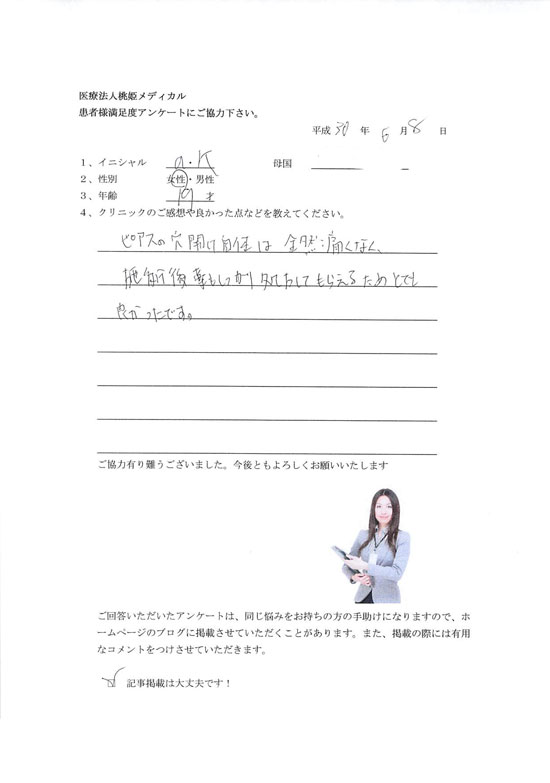 医療法人桃姫メディカル
患者様満足度アンケートにご協力下さい。
平成 30 年 6 月 8 日
1、イニシャル a・K 母国
2、性別 女性・男性
3、年齢 19 才
4、クリニックのご感想や良かった点などを教えてください。
ピアスの穴開け自体は全然痛くなく、
施術後薬もしっかり処方してもらえるためとても
良かったです。
ご協力有り難うございました。今後ともよろしくお願いいたします
ご回答いただいたアンケートは、同じ悩みをお持ちの方の手助けになりますので、ホ
ームページのブログに掲載させていただくことがあります。また、掲載の際には有用
なコメントをつけさせていただきます。
記事掲載は大丈夫です！